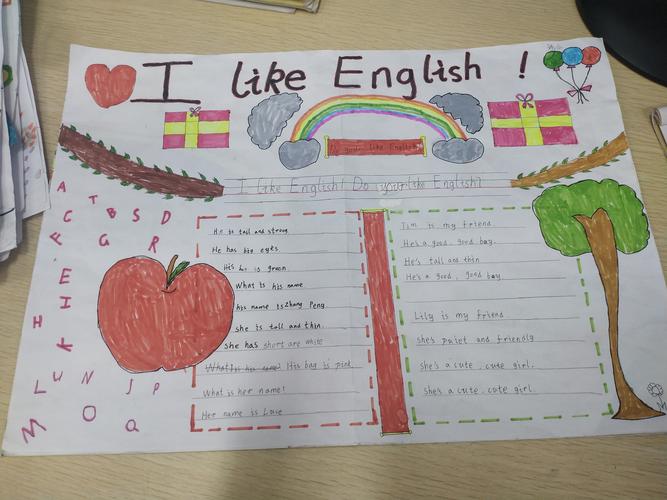 I like English !
Do you like English
I like English! Do you like English?
A
T
C B S D
F G R
E
I
H
K
L U N J P
M O Q
He is tall and strong
He has big eyes
His is green
What is his name
his name is Zhang Peng
she is tall and thin.
she has short are white
What is his name? His bag is pink
What is her name?
Her name is
Tim is my friend.
He's a good, good boy.
He's tall and thin
He's a good, good boy
Lily is my friend
she's quiet and friendly
she's a cute, cute girl.
she's a cute, cute girl.